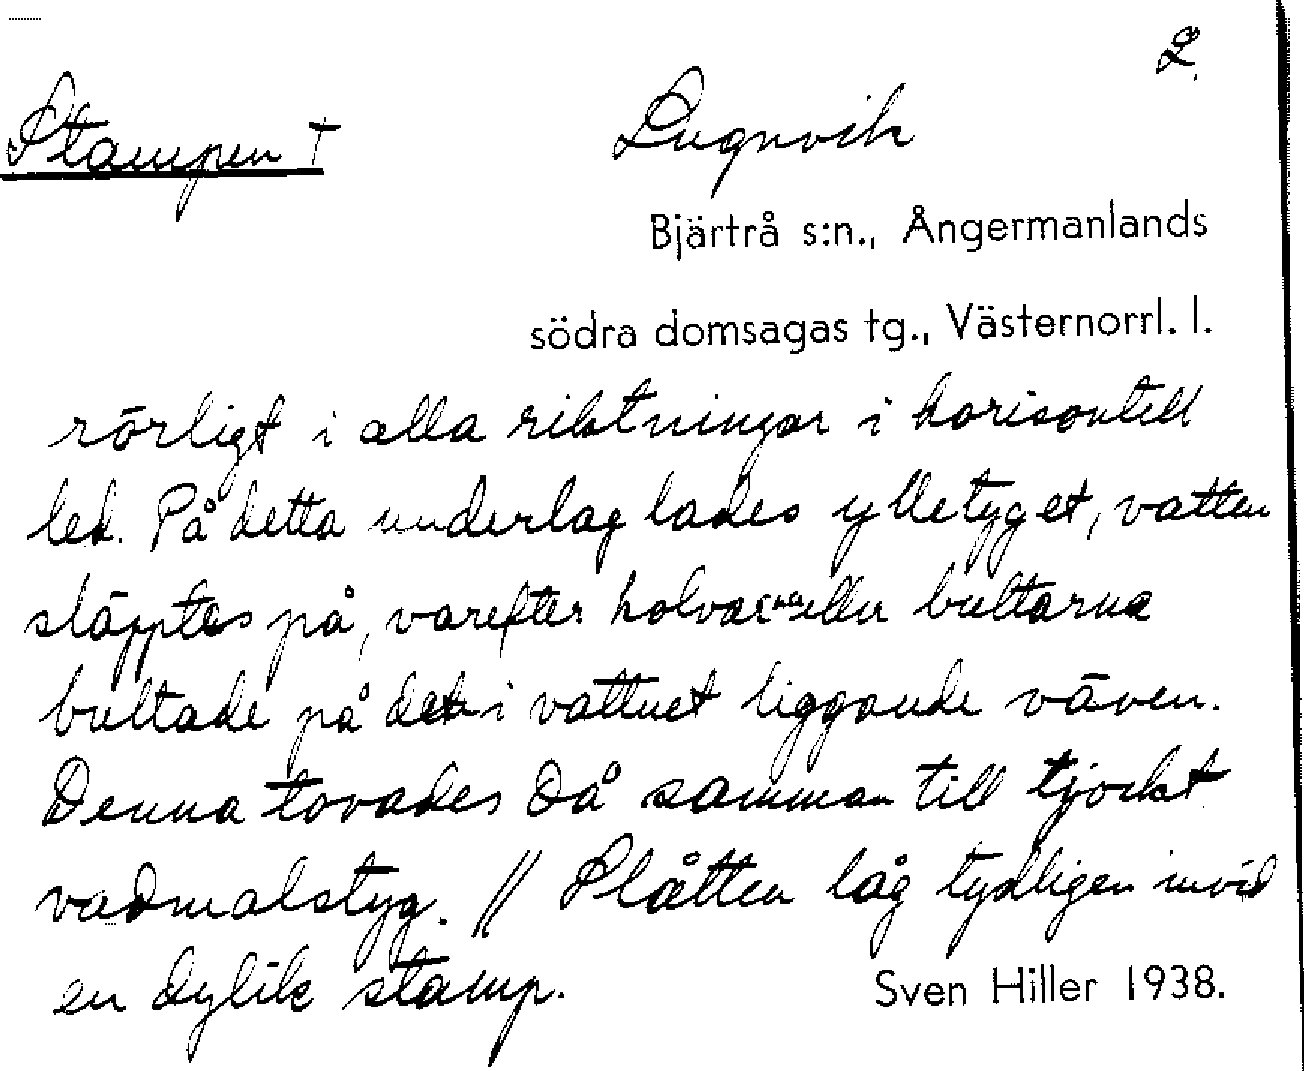 2.
Stampen † Lugnvik
Bjärtrå s:n., Ångermanlands
södra domsagas tg., Västernorrl. l.
rörligt i alla riktningar i horisontell
led. På detta underlag lades ylletyget, vatten
släpptes på, varefter holvarna eller bultarna
bultade på den i vattnet liggande väven.
Denna tovades då samman till tjockt
vadmalstyg. // Slåtten låg tydligen invid
en dylik stamp. Sven Hiller 1938.